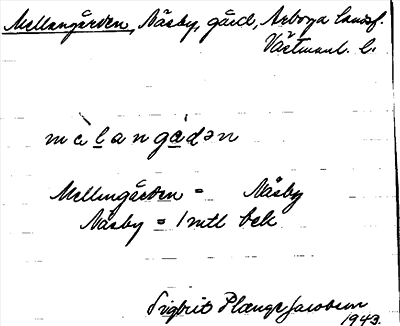 Mellangården, Näsby, gård, Arboga landsf.
Västmanl. l.
mèlangádən
Mellangården = Näsby
Näsby = 1 mtl bek
Sigbrit Plænge Jacobson
1943.